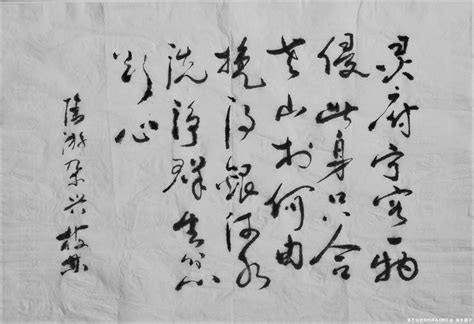 灵府宁容一物
侵此身只合
老山林何由
挽得银河水
洗净群生忿
欲心
陆游杂兴